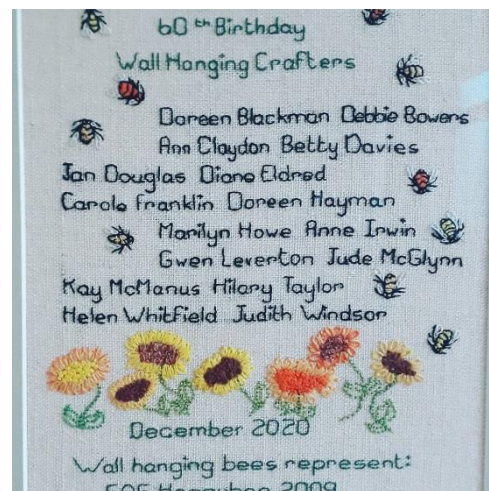 60th Birthday
Wall Hanging Crafters
Doreen Blackman Debbie Bowers
Ann Claydon Betty Davies
Jan Douglas Diane Eldred
Carole Franklin Doreen Hayman
Marilyn Howe Anne Irwin
Gwen Leverton Jude McGlynn
Kay McManus Hilary Taylor
Helen Whitfield Judith Windsor
December 2020
Wall hanging bees represent: